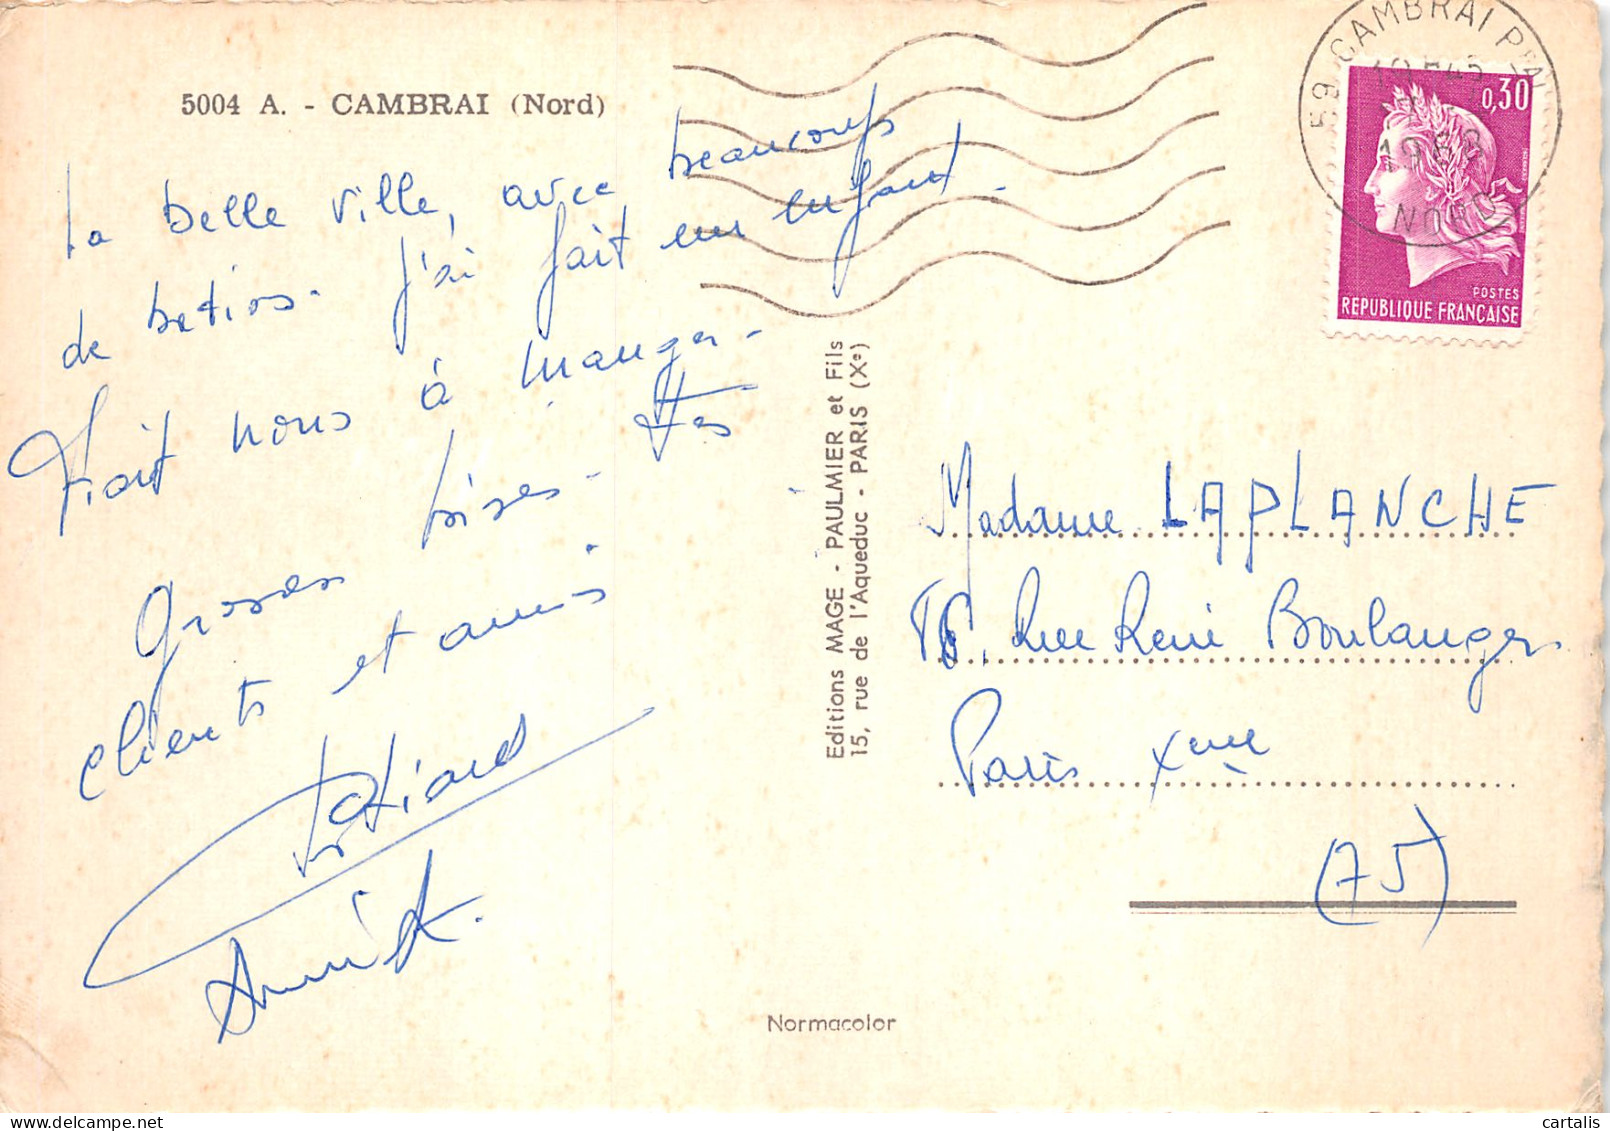 5004 A. - CAMBRAI (Nord)
La belle ville, avec beaucoup
de betios. J'ai fait un enfant.
Fait nous à manger.
Grosses bises. Tes
clients et amis
Annick.
Editions MAGE - PAULMIER et Fils
15, rue de l'Aqueduc - PARIS (Xe)
Normacolor
59 CAMBRAI PPAL
NORD
0,30
POSTES
REPUBLIQUE FRANÇAISE
Madame LAPLANCHE
Rue René Boulanger
Paris Xeme
(75)
cartalis